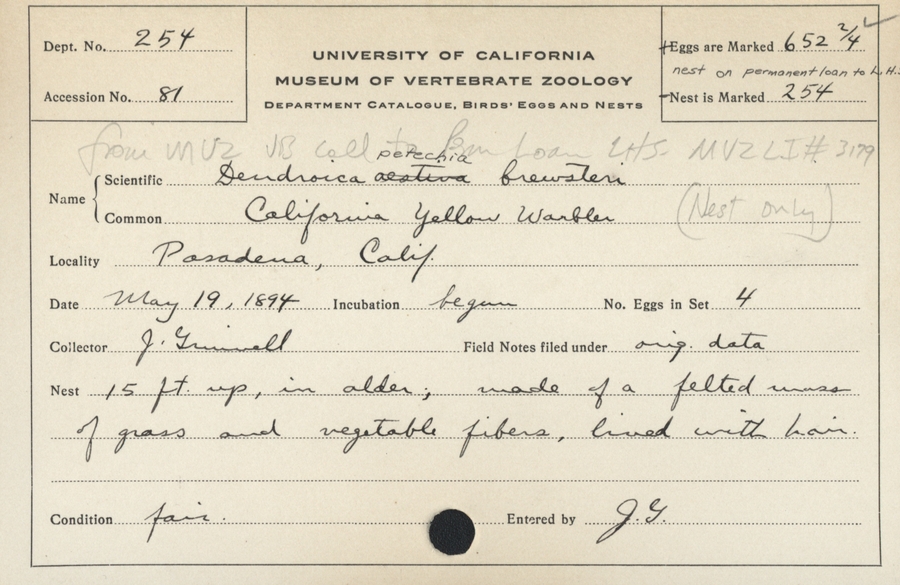 Dept. No. 254
Accession No. 81
UNIVERSITY OF CALIFORNIA
MUSEUM OF VERTEBRATE ZOOLOGY
DEPARTMENT CATALOGUE, BIRDS' EGGS AND NESTS
Eggs are Marked 652 2/4
nest on permanent loan to L.H.S.
Nest is Marked 254
from MVZ VB coll to Perm Loan LHS. MVZ LI# 3179
petechia
Name Scientific Dendroica aestiva brewsteri
Common California Yellow Warbler (Nest only)
Locality Pasadena, Calif.
Date May 19, 1894 Incubation begun No. Eggs in Set 4
Collector J. Grinnell Field Notes filed under orig. data
Nest 15 ft. up, in alder; made of a felted mass
of grass and vegetable fibers, lined with hair.
Condition fair. Entered by J.G.